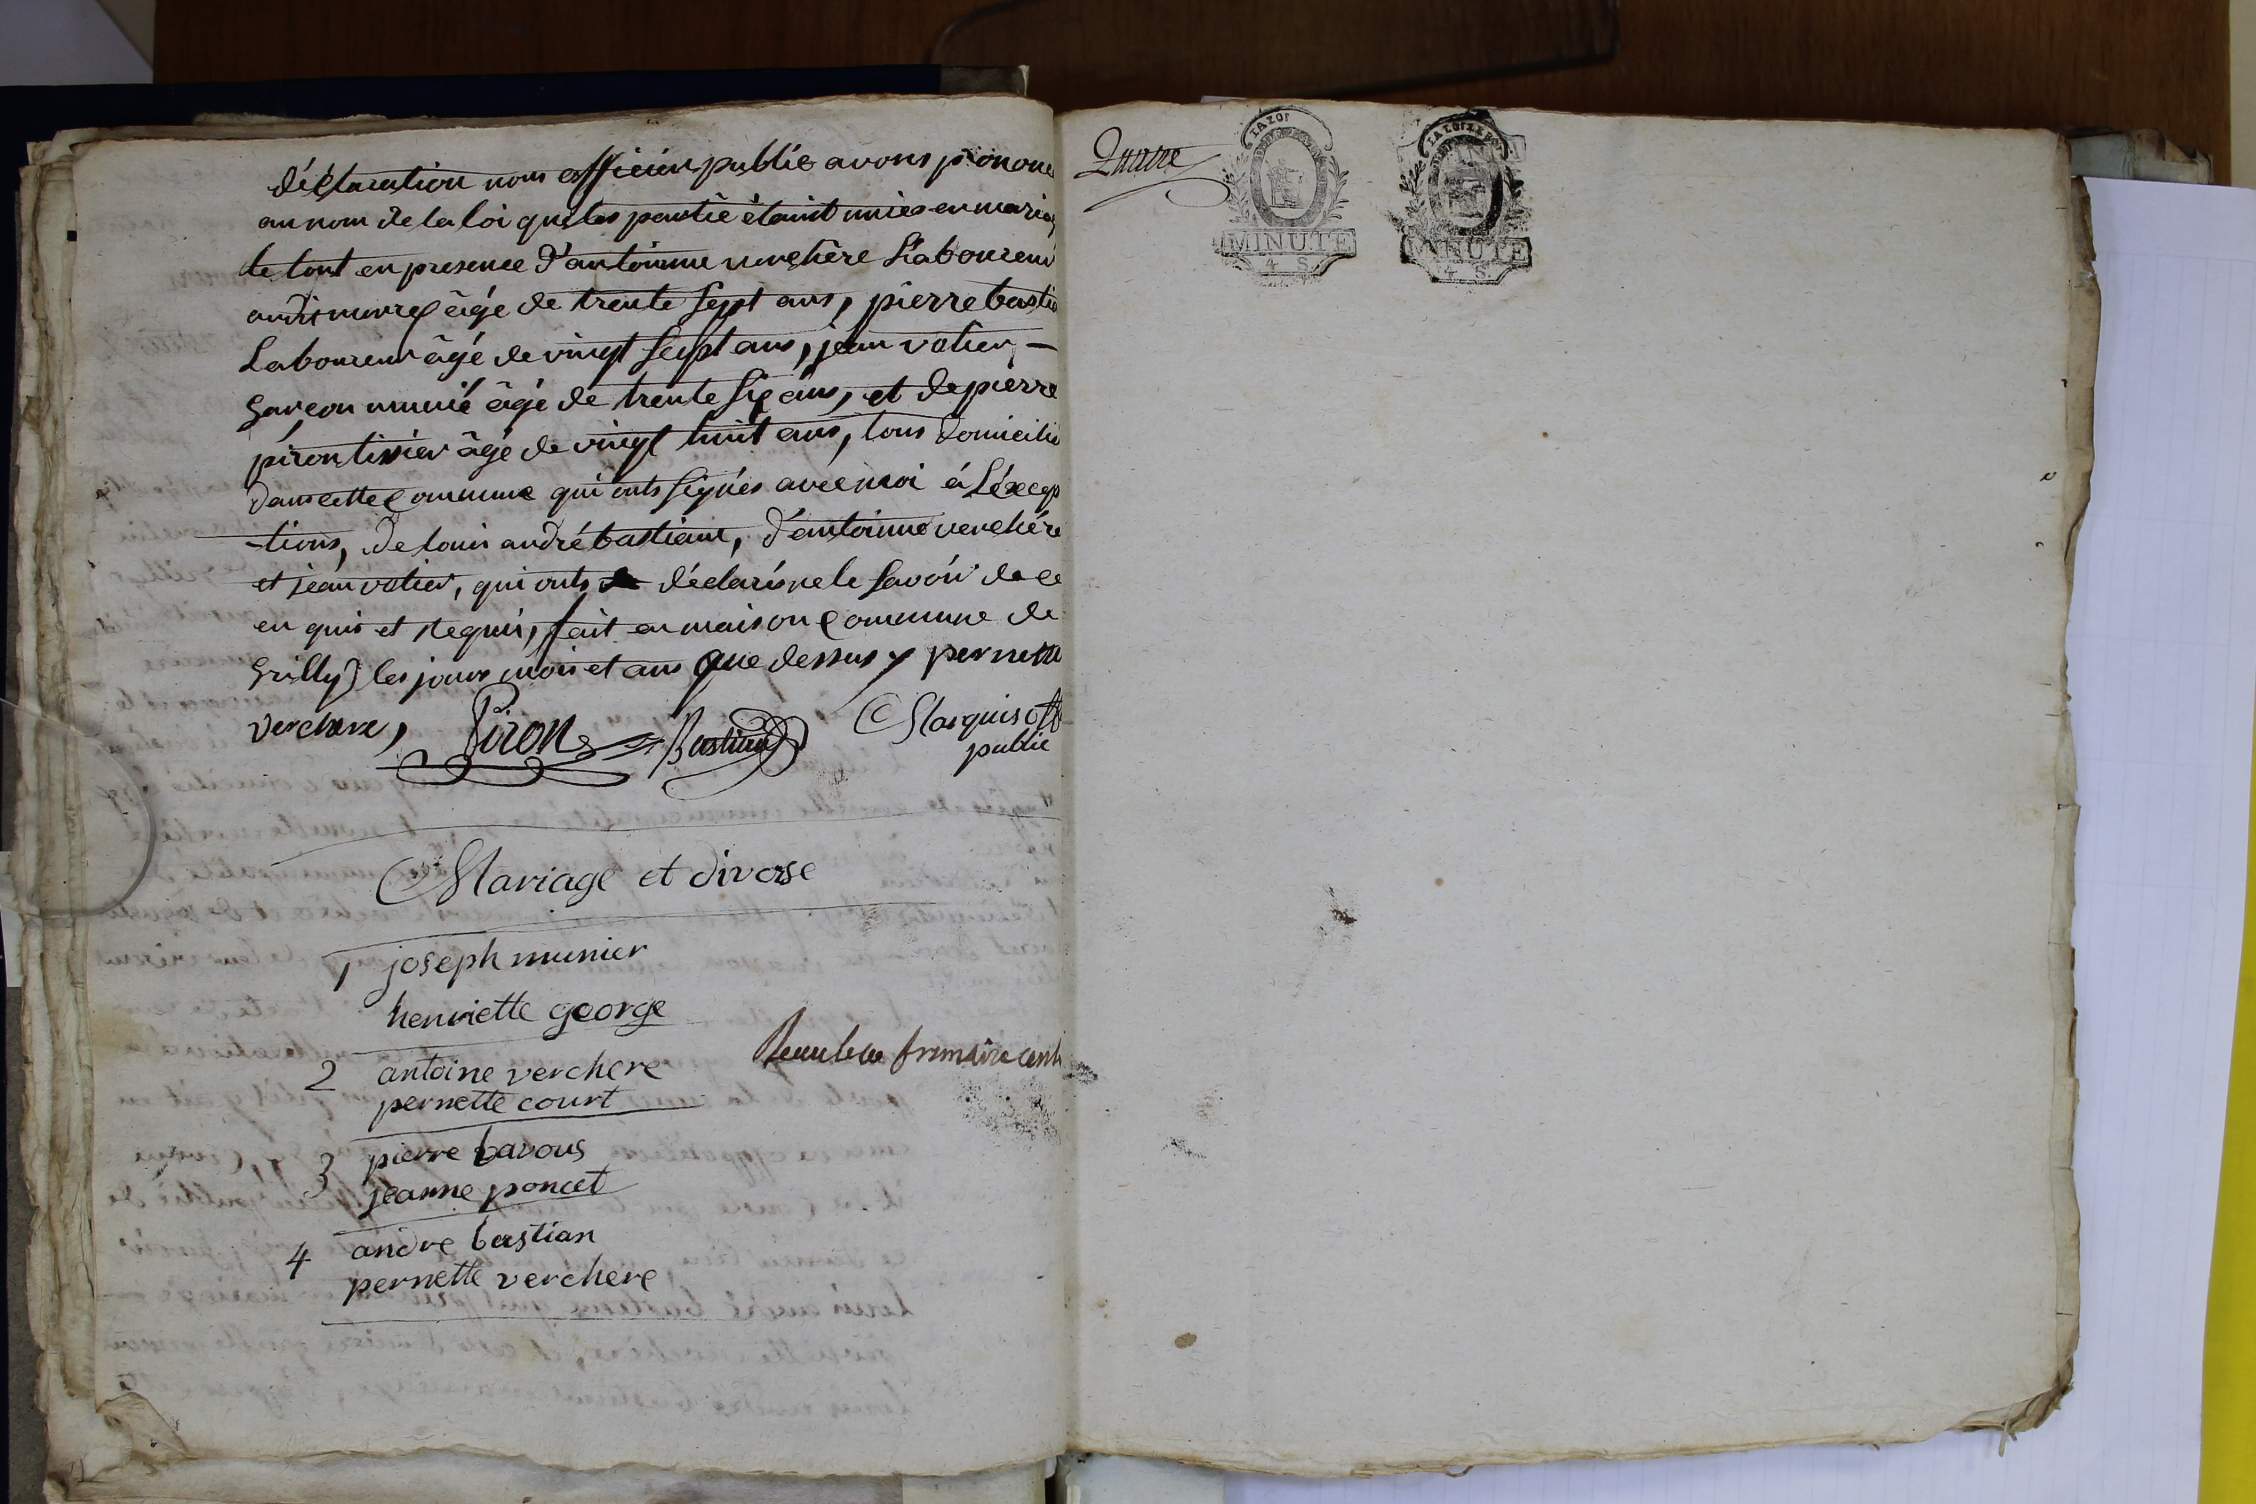 déclaration nous officier public avons prononc
au nom de la loi que les partie étaint unies en mariag
le tout en presence d'antoinne verchère Laboureur
audit murex âgé de trente sept ans, pierre bastia
Laboureur âgé de vingt sept ans, jean votier
garçon munié âgé de trente six ans, et de pierre
piron tissier âgé de vingt huit ans, tous domicilié
dans cette commune qui onts signés avec moi à L'éxcep
-tions, de louis andré bastiant, d'antoinne verchére
et jean votier, qui onts déclarés ne le savoir de ce
enquis et requis, fait en maison commune de
Grilly les jours mois et ans que dessus pernette
verchere, Piron Bastian Marquis off
public
Mariage et divorse
1 joseph munier
henriette george
2 antoine verchere
pernette court
3 pierre bavous
jeanne poncet
4 andre bastian
pernette verchere
frimaire
MINUTE
4 S.
MINUTE
4 S.